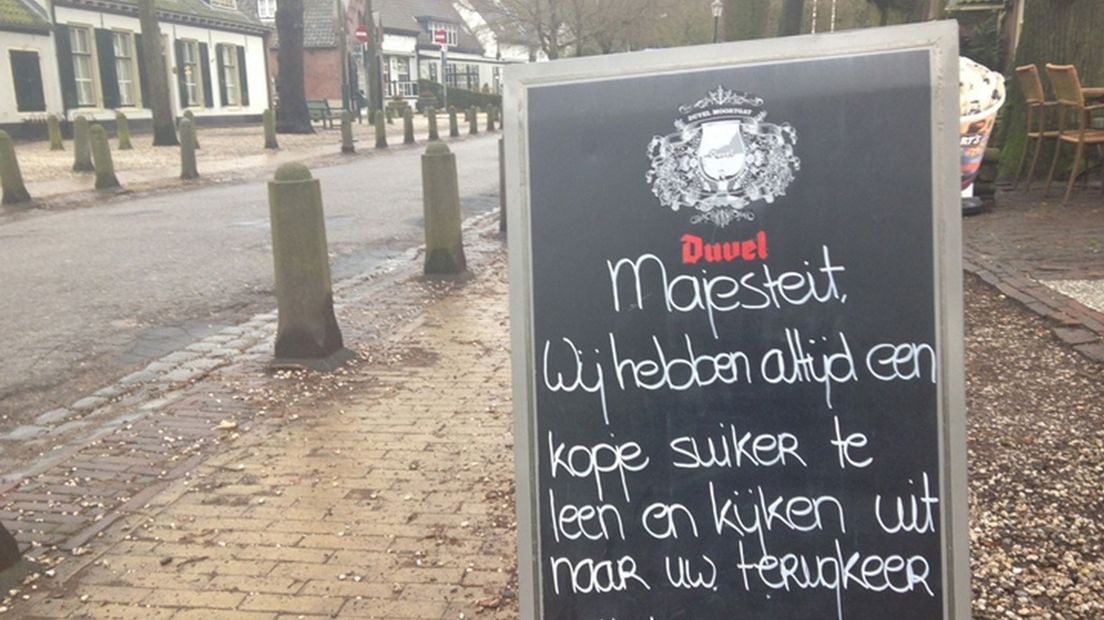 DUVEL MOORTGAT
Duvel
Majesteit,
Wij hebben altijd een
kopje suiker te
leen en kijken uit
naar uw terugkeer